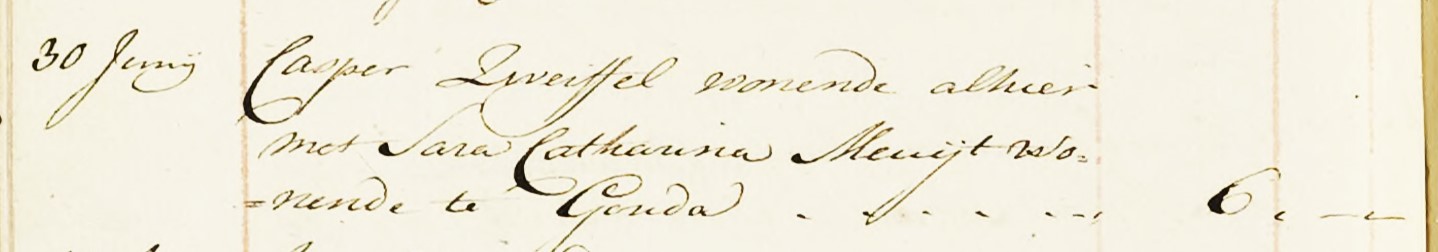 30 Junij Casper Zweissel wonende alhier
met Sara Catharina Meuijt wo=
=nende te Gouda . . . . . . 6. —